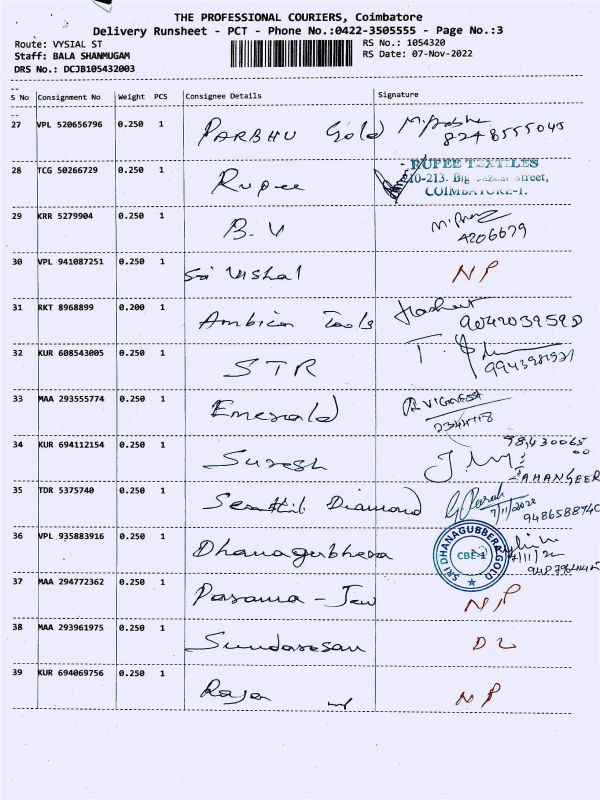 THE PROFESSIONAL COURIERS, Coimbatore
Delivery Runsheet - PCT - Phone No.:0422-3505555 - Page No.:3
Route: VYSIAL ST RS No.: 1054320
Staff: BALA SHANMUGAM RS Date: 07-Nov-2022
DRS No.: DCJB105432003
S No Consignment No Weight PCS Consignee Details Signature
27 VPL 520656796 0.250 1 PARBHU Gold
8248555045
28 TCG 50266729 0.250 1 Rupee RUPEE TEXTILES
210-213. Big Bazaar Street,
COIMBATORE-1.
29 KRR 5279904 0.250 1 B.V
4206679
30 VPL 941087251 0.250 1 Sri Vishal NP
31 RKT 8968899 0.200 1 Ambica Tools
9042039590
32 KUR 608543005 0.250 1 STR
33 MAA 293555774 0.250 1 Emerald VIGNESH
2344118
34 KUR 694112154 0.250 1 Suresh
JAHANGEER
35 TDR 5375740 0.250 1 Senthil Diamond
7/11/2022
9486588740
36 VPL 935883916 0.250 1 Dhanagubhera SRI DHANAGUBBERA GOLD
CBE-1
37 MAA 294772362 0.250 1 Parama - Jew NP
38 MAA 293961975 0.250 1 Sundaresan DL
39 KUR 694069756 0.250 1 Raja NP